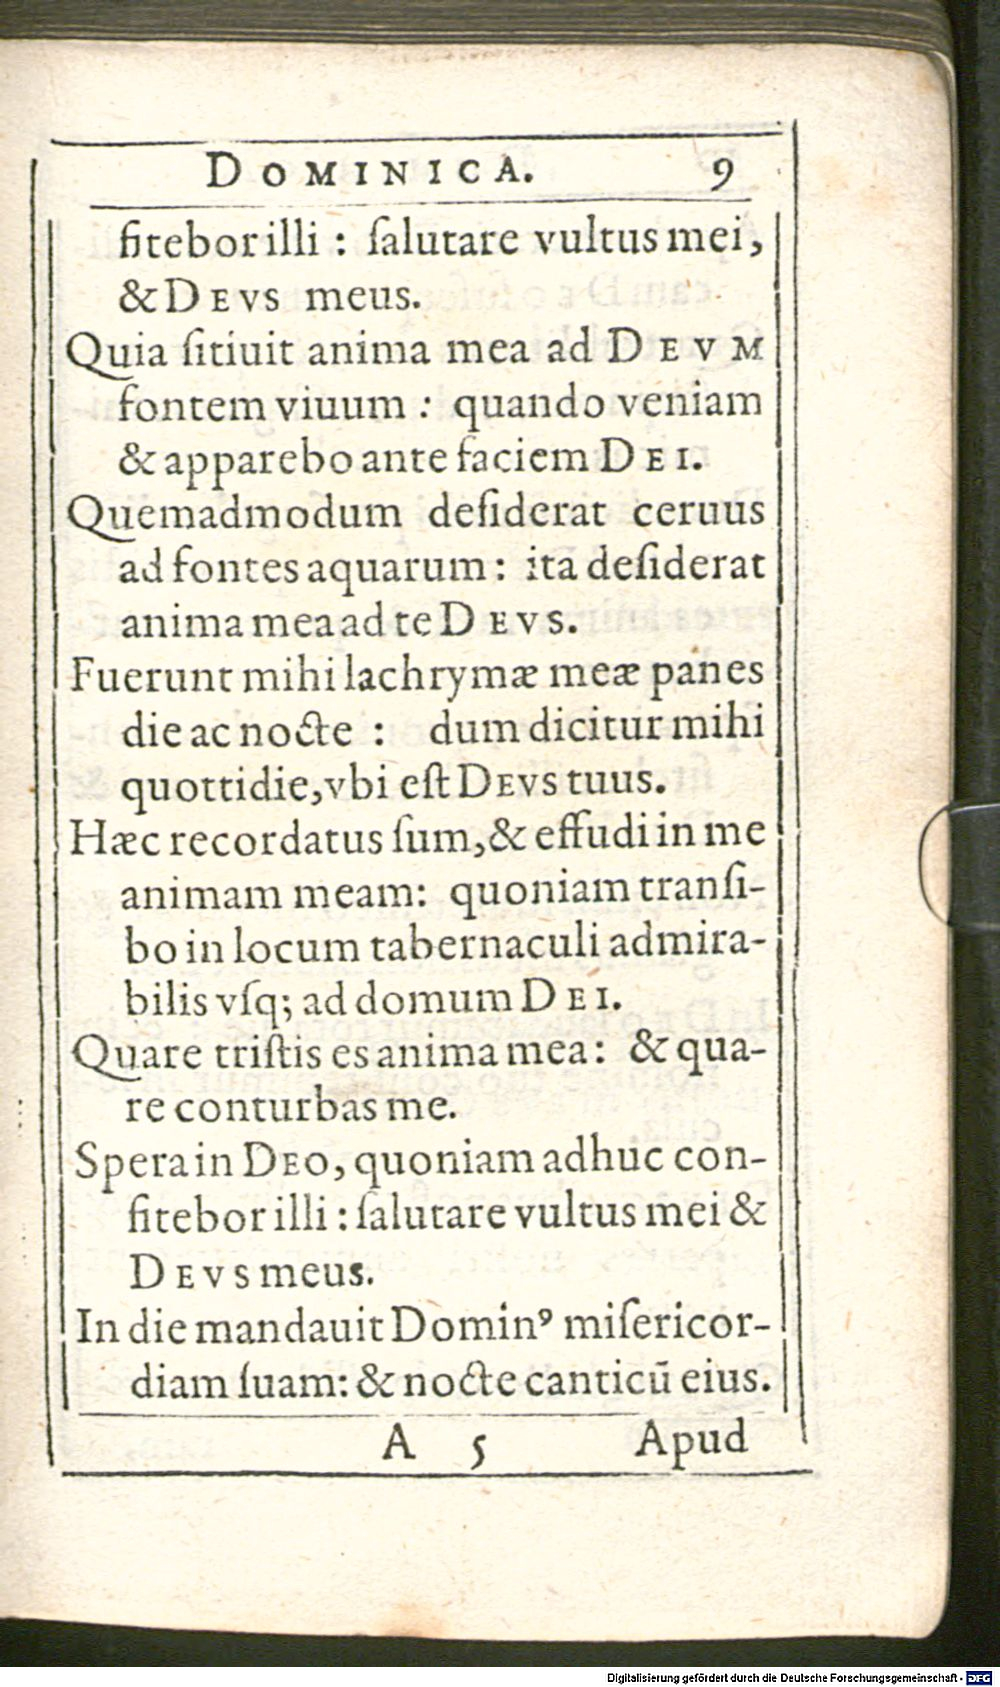 DOMINICA. 9
fitebor illi : ſalutare vultus mei,
& DEVS meus.
Quia ſitiuit anima mea ad DEVM
fontem viuum : quando veniam
& apparebo ante faciem DEI.
Quemadmodum deſiderat ceruus
ad fontes aquarum : ita deſiderat
anima mea ad te DEVS.
Fuerunt mihi lachrymæ meæ panes
die ac nocte : dum dicitur mihi
quottidie, vbi eſt DEVS tuus.
Hæc recordatus ſum, & effudi in me
animam meam: quoniam tranſi-
bo in locum tabernaculi admira-
bilis vſq; ad domum DEI.
Quare triſtis es anima mea : & qua-
re conturbas me.
Spera in DEO, quoniam adhuc con-
fitebor illi : ſalutare vultus mei &
DEVS meus.
In die mandauit Dominꝰ miſericor-
diam ſuam: & nocte canticū eius.
A 5 Apud
Digitalisierung gefördert durch die Deutsche Forschungsgemeinschaft - DFG